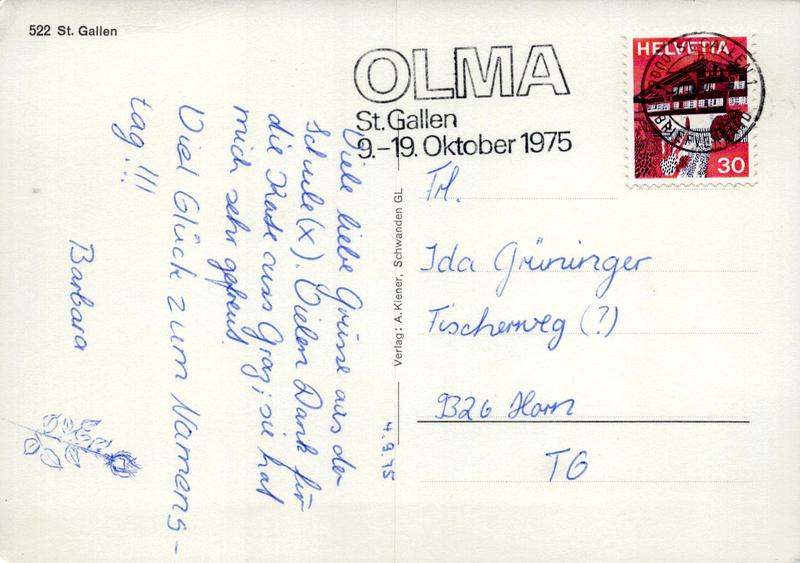 522 St. Gallen
OLMA
St. Gallen
9.–19. Oktober 1975
HELVETIA
30
Viele liebe Grüsse aus der
Schule (x). Vielen Dank für
die Karte aus Graz; sie hat
mich sehr gefreut.
Viel Glück zum Namens-
tag!!!
Barbara
4.9.75
Verlag: A. Kiener, Schwanden GL
Frl.
Ida Grüninger
Fischerweg (?)
9326 Horn
TG